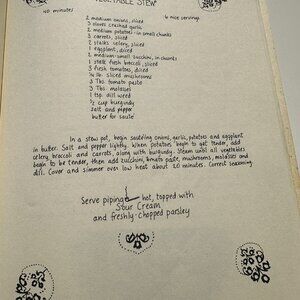 VEGETABLE STEW
40 minutes
6 nice servings
2 medium onions, sliced
3 cloves crushed garlic
2 medium potatoes - in small chunks
3 carrots, sliced
2 stalks celery, sliced
1 eggplant, diced
2 medium-small zucchini, in chunks
1 stalk fresh broccoli, sliced
3 fresh tomatoes, diced
lb. sliced mushrooms
3 Tbs. tomato paste
3 Tbs. molasses
1 tsp. dill weed
½ cup burgundy
salt and pepper
butter for sauté
In a stew pot, begin sautéing onions, garlic, potatoes and eggplant
in butter. Salt and pepper lightly. When potatoes begin to get tender, add
celery, broccoli and carrots, along with burgundy. Steam until all vegetables
begin to be tender, then add zucchini, tomato paste, mushrooms, molasses and
dill. Cover and simmer over low heat about 20 minutes. Correct seasoning
Serve piping hot, topped with
Sour Cream
and freshly-chopped parsley